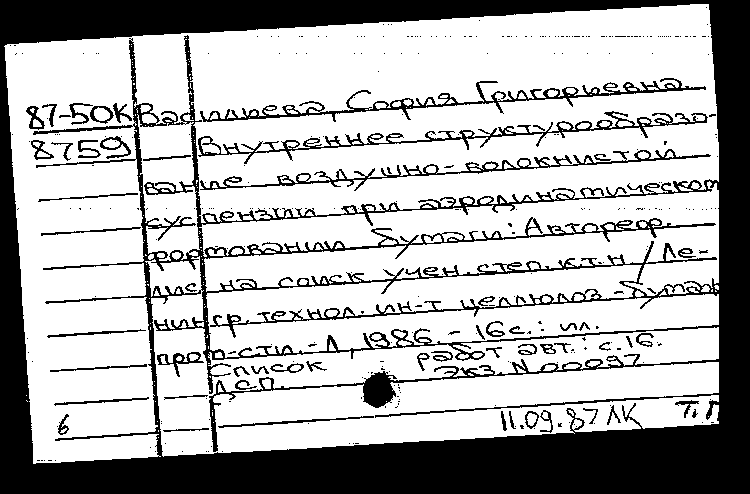 87-50К Васильева, София Григорьевна.
8759 Внутреннее структурообразо-
вание воздушно-волокнистой
суспензии при аэродинамическом
формовании бумаги: Автореф.
дис на соиск учен. степ. к.т.н / Ле-
нингр. технол. ин-т целлюлоз.-бумаж
пром-сти.-Л, 1986. - 16 с.: ил.
Список работ авт.: с. 16.
Д.С.П. Экз. N 00097
6 11.09.87 ЛК Т. П